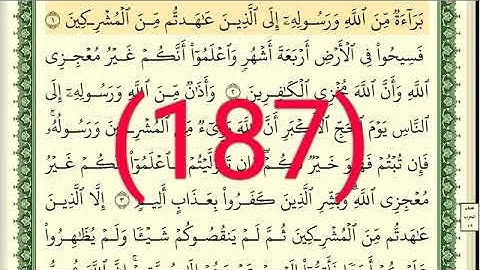 بَرَآءَةٌ مِّنَ ٱللَّهِ وَرَسُولِهِۦٓ إِلَى ٱلَّذِينَ عَٰهَدتُّم مِّنَ ٱلْمُشْرِكِينَ ١
فَسِيحُوا۟ فِى ٱلْأَرْضِ أَرْبَعَةَ أَشْهُرٍ وَٱعْلَمُوٓا۟ أَنَّكُمْ غَيْرُ مُعْجِزِى
ٱللَّهِ وَأَنَّ ٱللَّهَ مُخْزِى ٱلْكَٰفِرِينَ ٢ وَأَذَٰنٌ مِّنَ ٱللَّهِ وَرَسُولِهِۦٓ إِلَى
ٱلنَّاسِ يَوْمَ ٱلْحَجِّ ٱلْأَكْبَرِ أَنَّ ٱللَّهَ بَرِىٓءٌ مِّنَ ٱلْمُشْرِكِينَ وَرَسُولُهُۥ
(187)
فَإِن تُبْتُمْ فَهُوَ خَيْرٌ لَّكُمْ وَإِن تَوَلَّيْتُمْ فَٱعْلَمُوٓا۟ أَنَّكُمْ غَيْرُ
مُعْجِزِى ٱللَّهِ وَبَشِّرِ ٱلَّذِينَ كَفَرُوا۟ بِعَذَابٍ أَلِيمٍ ٣ إِلَّا ٱلَّذِينَ
عَٰهَدتُّم مِّنَ ٱلْمُشْرِكِينَ ثُمَّ لَمْ يَنقُصُوكُمْ شَيْـًٔا وَلَمْ يُظَٰهِرُوا۟